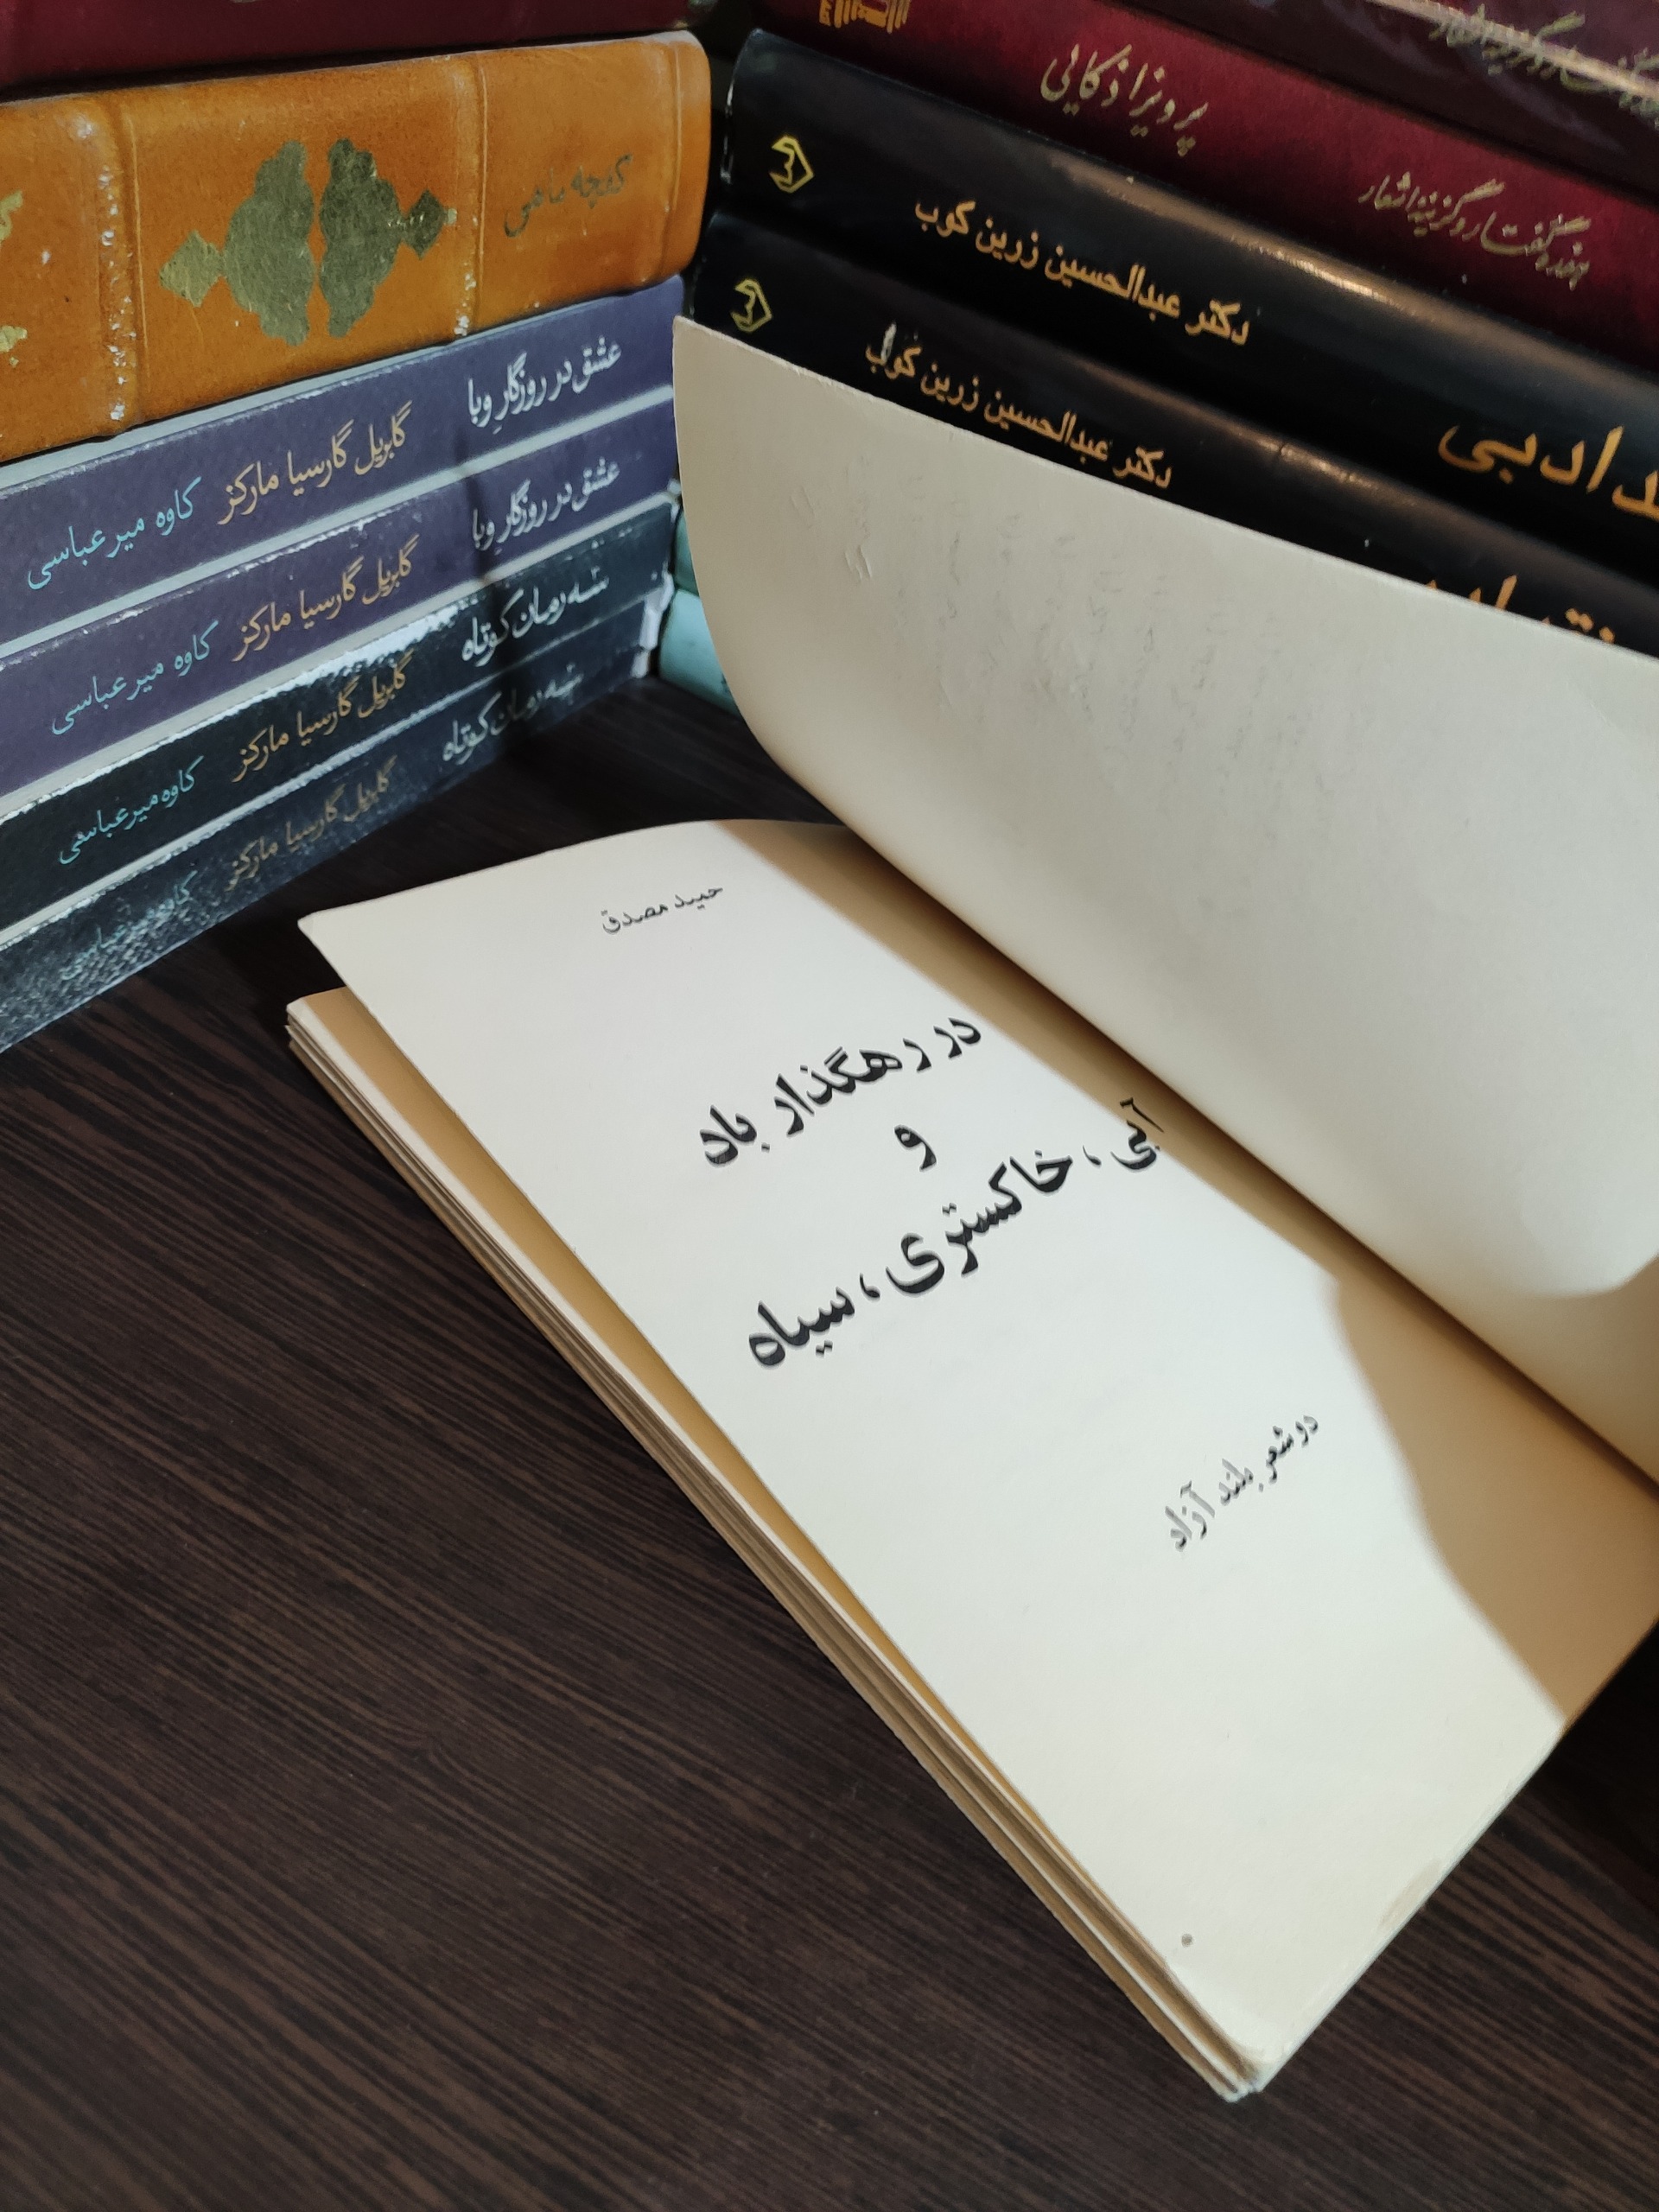 کفچه ماهی
عشق در روزگارِ وبا گابریل گارسیا مارکز کاوه میرعباسی
عشق در روزگارِ وبا گابریل گارسیا مارکز کاوه میرعباسی
سه رمان کوتاه گابریل گارسیا مارکز کاوه میرعباسی
سه رمان کوتاه گابریل گارسیا مارکز کاوه میرعباسی
پرویز اذکایی
دکتر عبدالحسین زرین کوب
ادبی
دکتر عبدالحسین زرین کوب
حمید مصدق
در رهگذار باد
و
آبی، خاکستری، سیاه
دو شعر بلند آزاد